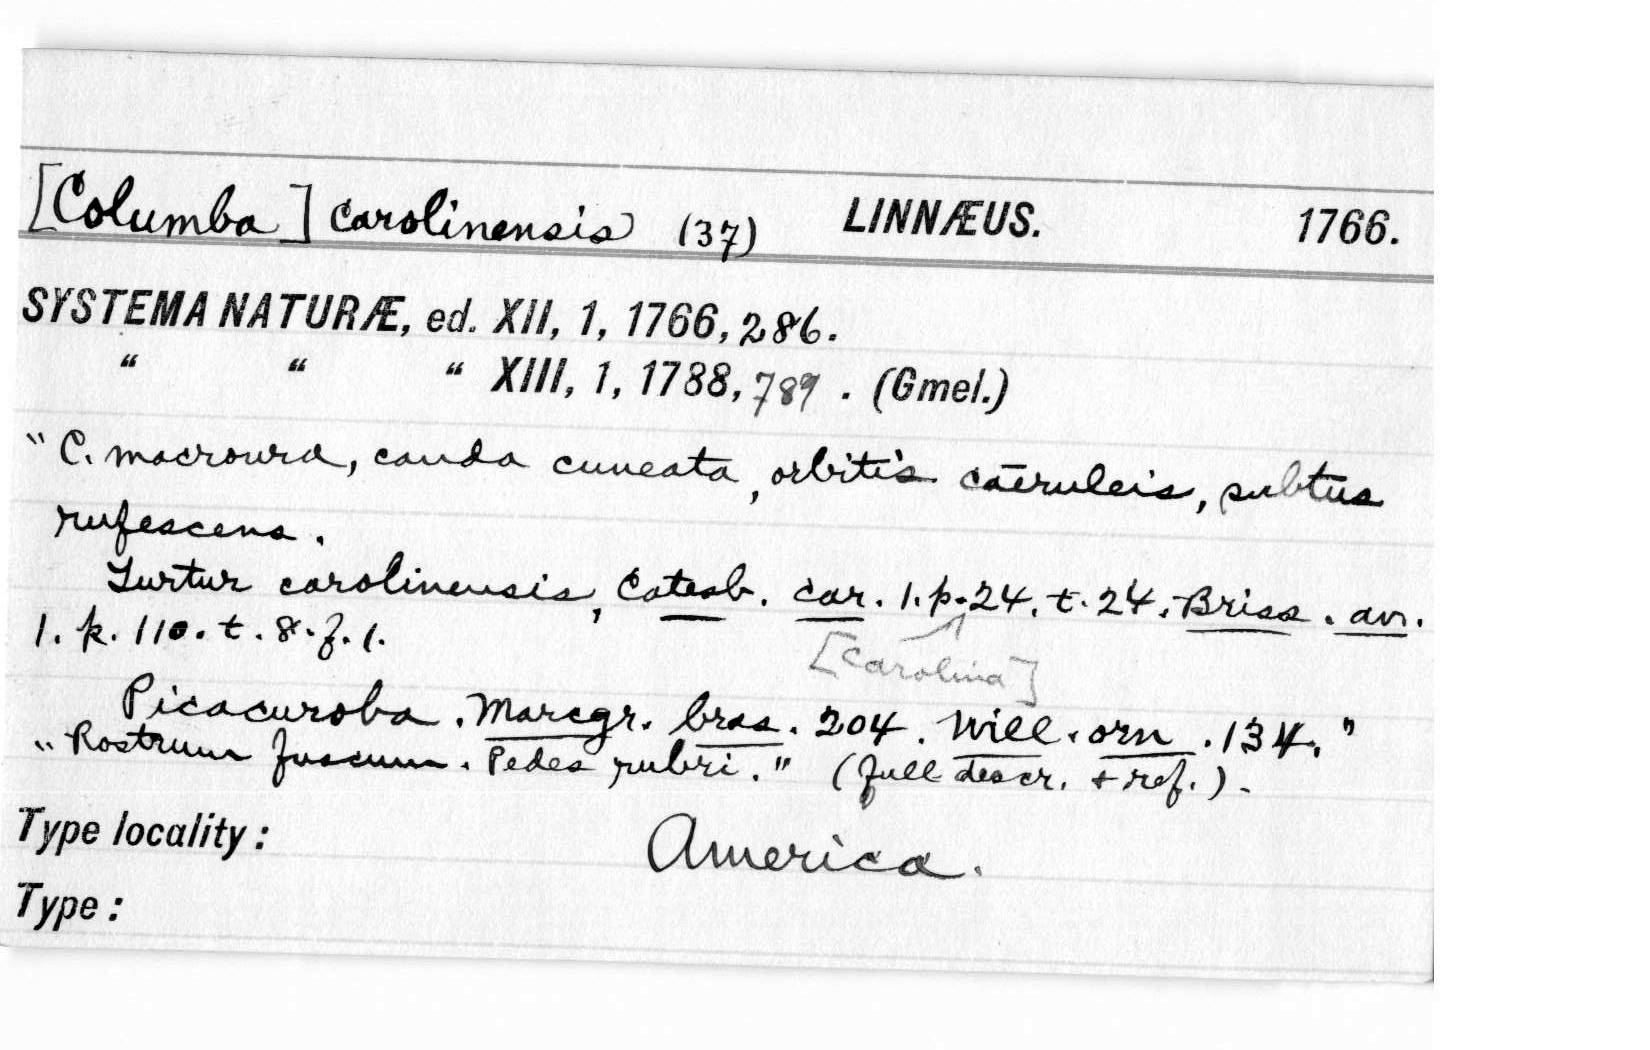 [Columba] carolinensis (37) LINNÆUS. 1766.
SYSTEMA NATURÆ, ed. XII, 1, 1766, 286.
“ “ “ XIII, 1, 1788, 789. (Gmel.)
"C. macroura, cauda cuneata, orbitis caeruleis, subtus
rufescens.
Turtur carolinensis, Catesb. car. 1. p. 24. t. 24. Briss. av.
1. p. 110. t. 8. f. 1.
[Carolina]
Picacuroba. Marcgr. bras. 204. Will. orn. 134."
"Rostrum fuscum. Pedes rubri." (full descr. + ref.).
Type locality: America.
Type: